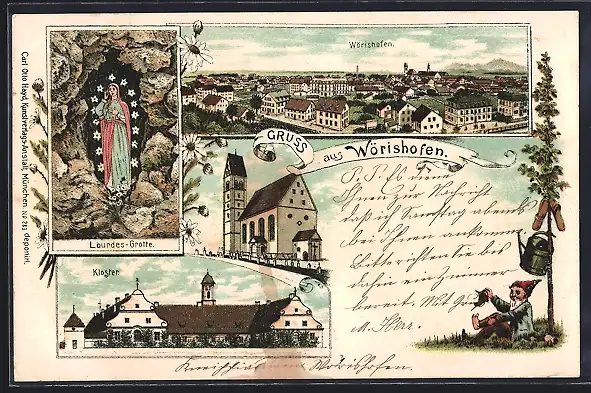 Wörishofen.
GRUSS
aus Wörishofen.
Carl Otto Hayd, Kunstverlags-Anstalt, München. No 283 deponirt.
Lourdes-Grotte.
Kloster.
P. P. Es diene
Ihnen zur Nachricht
daß ich Samstag abends
bei Ihnen ankomme
Bitte richten Sie bis
dahin ein Zimmer
bereit. Mit Gruß
M. Herr.
Wörishofen.